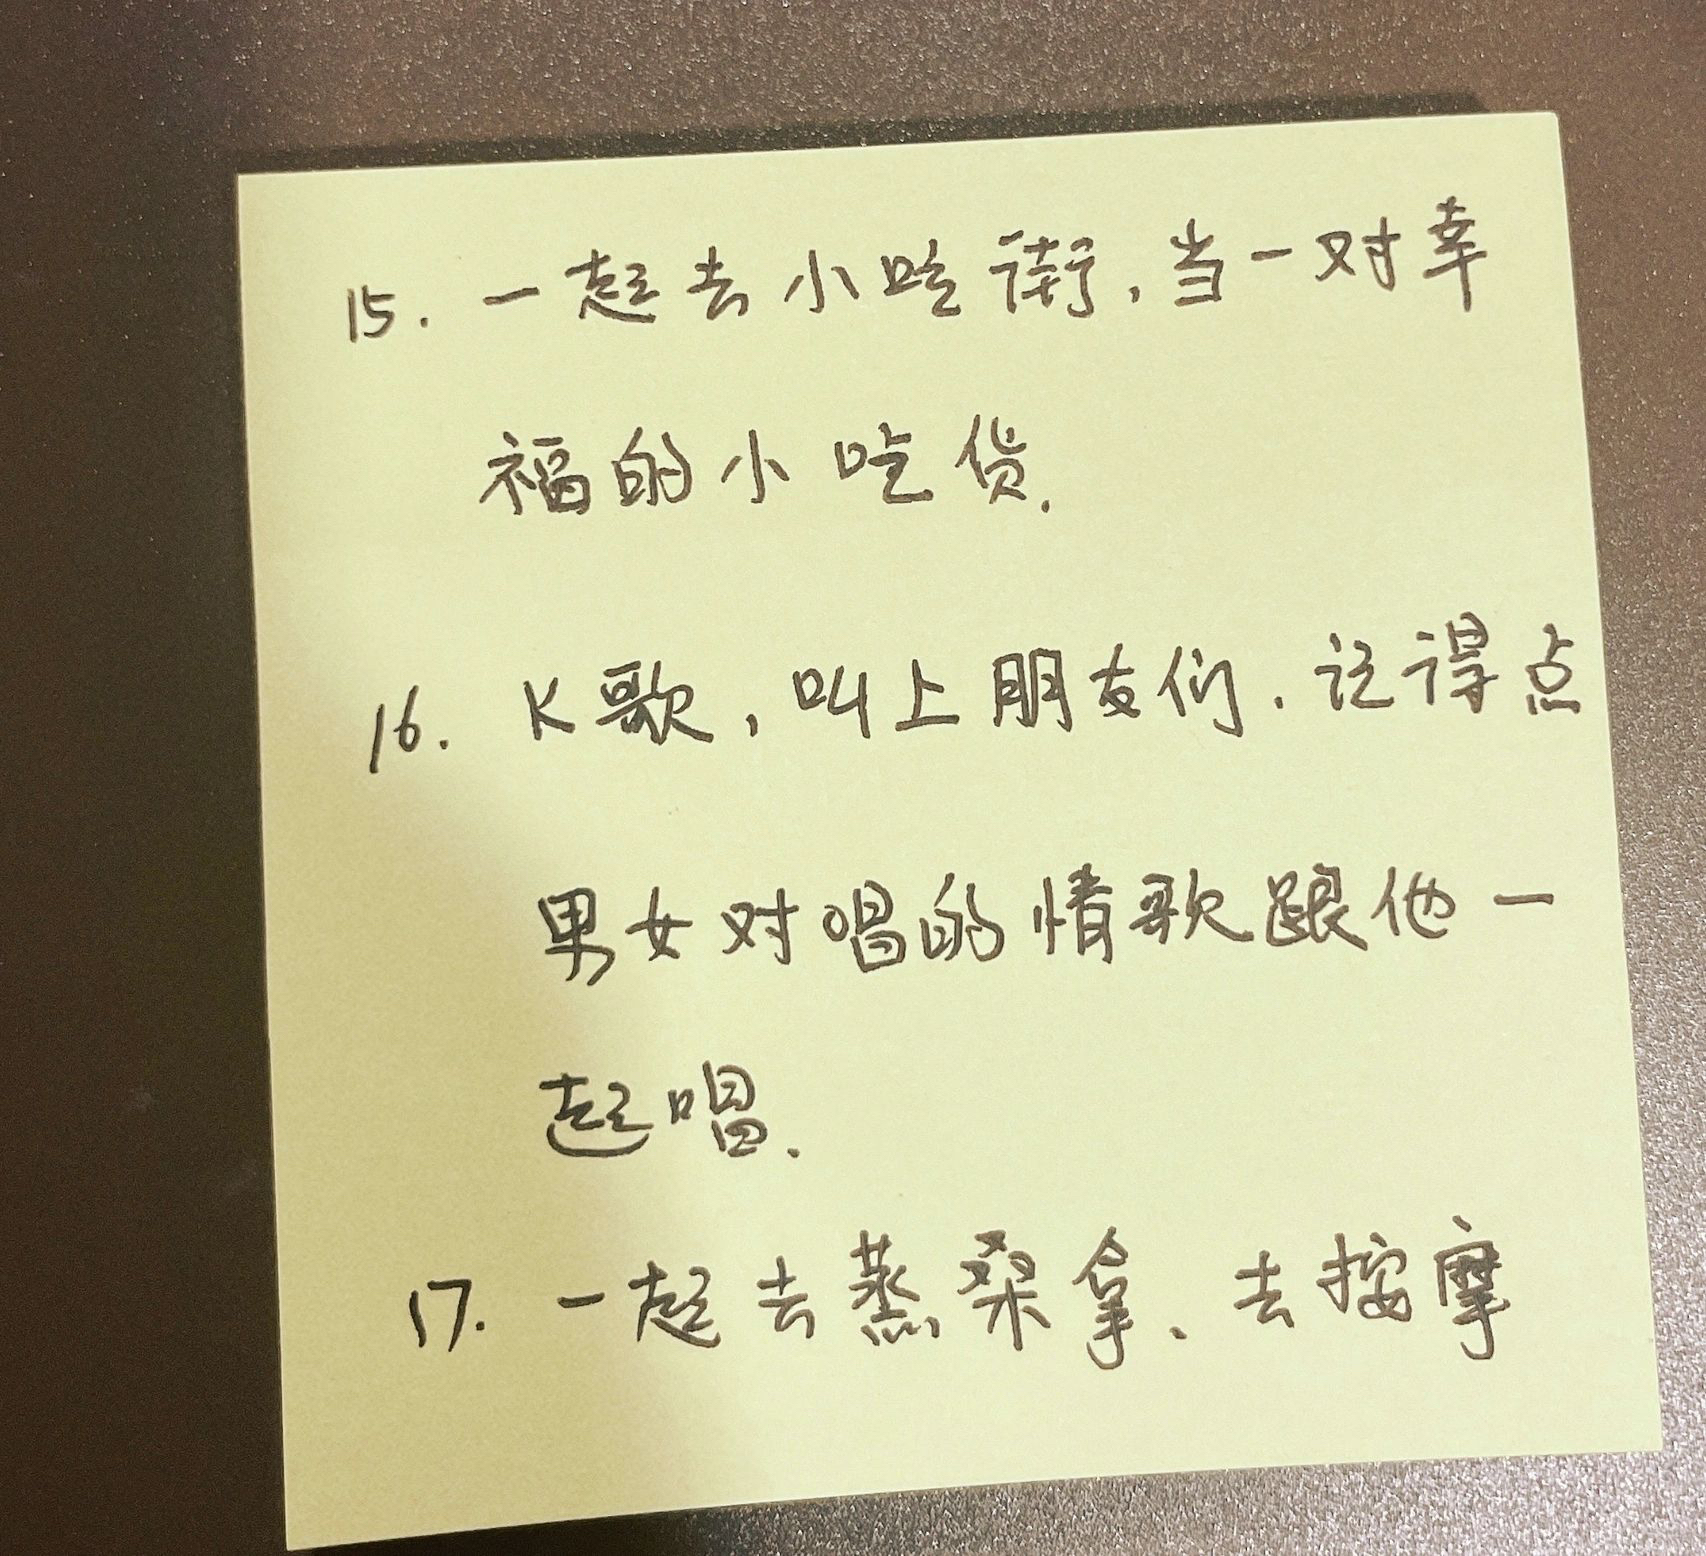 15. 一起去小吃街，当一对幸
福的小吃货.
16. K歌，叫上朋友们.记得点
男女对唱的情歌跟他一
起唱.
17. 一起去蒸桑拿、去按摩